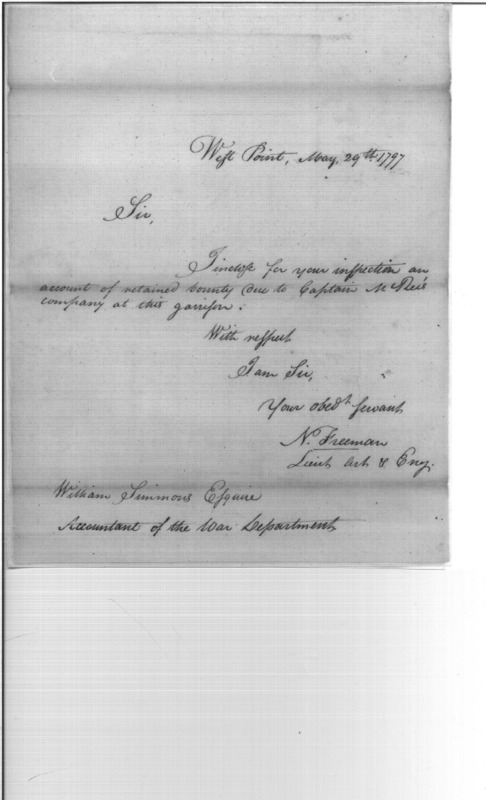 West Point, May, 29th 1797
Sir,
I inclose for your inspection an
account of retained bounty due to Captain
company at this garrison.
With respect
I am Sir,
Your obedt servant
N. Freeman
Lieut Art & Eng.
William Simmons Esquire
Accountant of the War Department